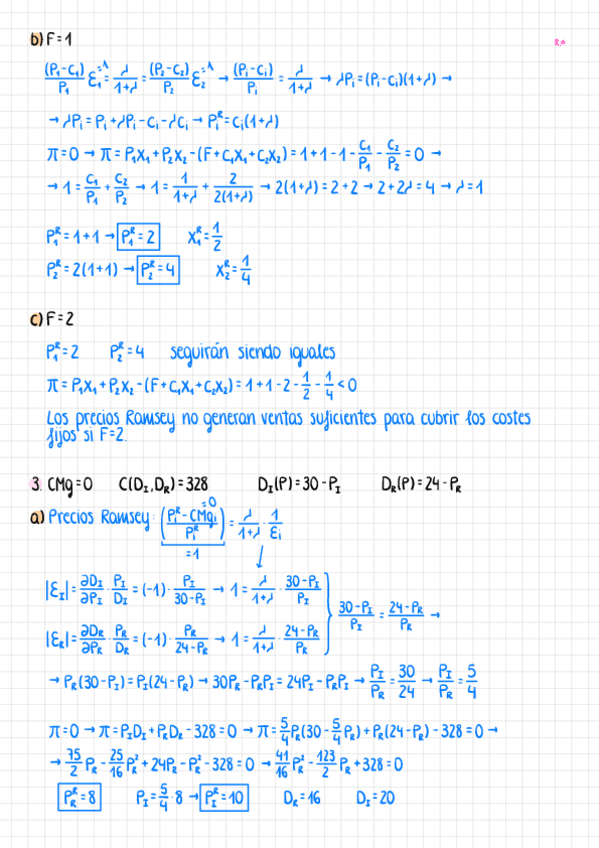 b) F=1
R*
(P₁-C₁)/P₁ ε₁⁼¹ = λ/(1+λ) = (P₂-C₂)/P₂ ε₂⁼¹ → (Pᵢ-Cᵢ)/Pᵢ = λ/(1+λ) → λPᵢ=(Pᵢ-Cᵢ)(1+λ) →
→ λPᵢ = Pᵢ+λPᵢ-Cᵢ-λCᵢ → Pᵢᴿ=Cᵢ(1+λ)
π=0 → π=P₁X₁+P₂X₂-(F+C₁X₁+C₂X₂)=1+1-1-C₁/P₁-C₂/P₂=0 →
→ 1=C₁/P₁+C₂/P₂ → 1=1/(1+λ)+2/(2(1+λ)) → 2(1+λ)=2+2 → 2+2λ=4 → λ=1
P₁ᴿ=1+1 → P₁ᴿ=2 X₁ᴿ=1/2
P₂ᴿ=2(1+1) → P₂ᴿ=4 X₂ᴿ=1/4
c) F=2
P₁ᴿ=2 P₂ᴿ=4 seguirán siendo iguales
π=P₁X₁+P₂X₂-(F+C₁X₁+C₂X₂)=1+1-2-1/2-1/4<0
Los precios Ramsey no generan ventas suficientes para cubrir los costes
fijos si F=2.
3. CMg=0 C(D_I,D_R)=328 D_I(P)=30-P_I D_R(P)=24-P_R
a) Precios Ramsey: (Pᵢᴿ-CMgᵢ)/Pᵢᴿ = λ/(1+λ) · 1/εᵢ
=0
=1
|ε_I|=∂D_I/∂P_I · P_I/D_I=(-1)·P_I/(30-P_I) → 1=λ/(1+λ) · (30-P_I)/P_I
(30-P_I)/P_I = (24-P_R)/P_R →
|ε_R|=∂D_R/∂P_R · P_R/D_R=(-1)·P_R/(24-P_R) → 1=λ/(1+λ) · (24-P_R)/P_R
→ P_R(30-P_I)=P_I(24-P_R) → 30P_R-P_RP_I=24P_I-P_RP_I → P_I/P_R=30/24 → P_I/P_R=5/4
π=0 → π=P_ID_I+P_RD_R-328=0 → π=5/4P_R(30-5/4P_R)+P_R(24-P_R)-328=0 →
→ 75/2P_R-25/16P_R²+24P_R-P_R²-328=0 → 41/16P_R²-123/2P_R+328=0
P_Rᴿ=8 P_I=5/4·8 → P_Iᴿ=10 D_R=16 D_I=20